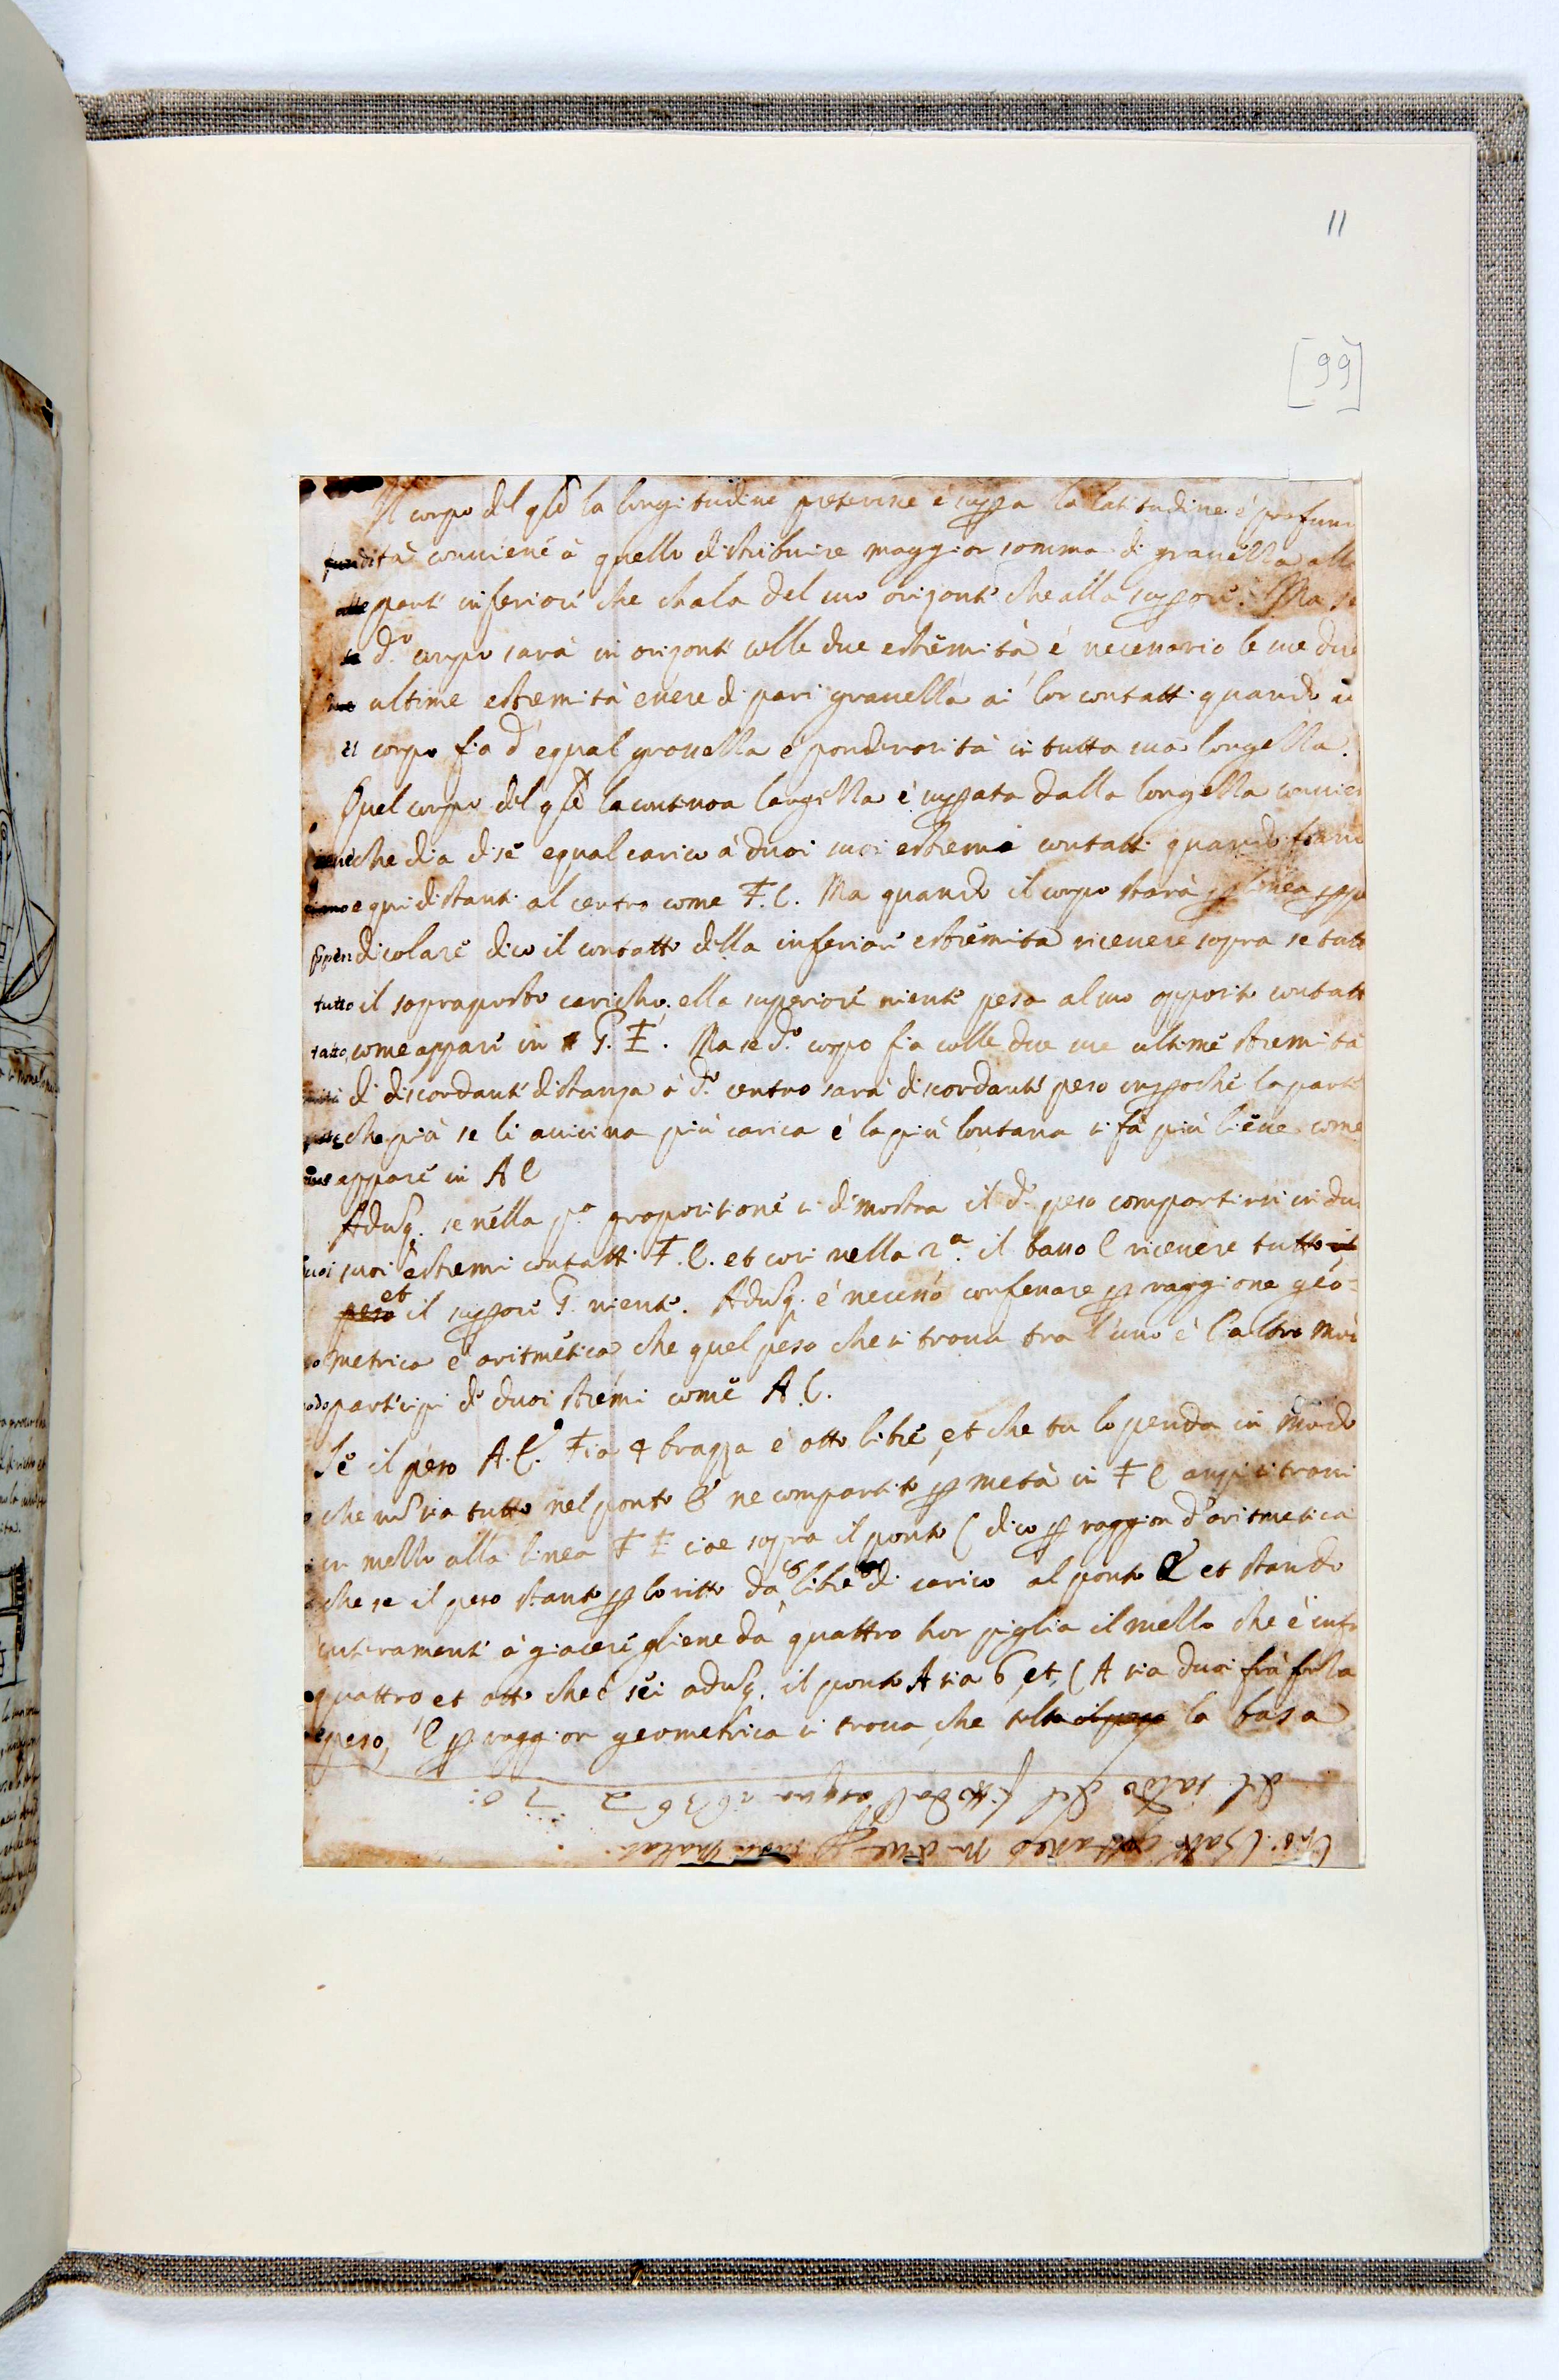 11
[99]
Il corpo del q̃le la longitudine preterise e supp̱a la latitudine é profun
fundità conviené à quello distribuire maggior somma di gravezza alle
alle parti inferiori che chala del suo orizonté che alla supp̱ore. Ma se
se d.º corpo sarà in orizonti colle due estremità é necessario le sue due
due ultime estremità essere di pari gravezza ai lor contatti quando il
il corpo fia d'equal gravezza é ponderosità in tutta sua longezza.
Quel corpo del q̃le la continoa largezza é supp̱ata dalla longezza convien
che dia di sé equal carico á duoi suoi estremi contatti quando siano
siano equidistanti al centro come F. C. Ma quando il corpo starà p̱ linea p̱pe
p̱pendicolaré dico il contatto della inferioré estremità ricevere sopra se tutto
tutto il sopraposto caricho. ella superioré nienté pesa al suo opposito contatt
tatto, come apparé in G. F. Ma se d.º corpo fia colle due sue ultimé stremità
di discordanti distanza á d.º centro sarà discordanté peso imp̱oché la parté
parte che piá se li avicina piú carica é la piú lontana si fá piú lieve come
come apparé in A C
Adu͂q. se nélla p.ª propositioné si dimostra il d.º peso compartirsi in du
suoi suoi estremi contatti F. C. et cosi nella 2.ª il basso C ricevere tutto il
peso et il supp̱oré G. nienté. Adu͂q. é necess.º confessare p̱ raggione géo=
metrica é aritmética che quel peso che si trova tra l'uno é l'altro mo
odo partécipi dé duoi strémi comé A. C.
Sé il péso A. C. Fia 4 brazza é otto libré, et che tu lo penda in modo
che no͂ sia tutto nel ponto C né compartito p̱ metà in F C anzi si trovi
in mezzo alla linea F F cioe sopra il ponto C dico p̱ raggion d'aritmetica
che se il peso stanto p̱ lo ritto da 8 libre di carico al ponto C et stando
interamenti á giaceré gliene dà quattro hor piglia il mezzo che é infra
quattro et otto che é séi adu͂q. il ponto A sia 6, et, C A sia duoi frá fo la
peso, E p̱ raggion geometrica si trova, che tolto il peso la basa
del saldo del fitto dal 1636